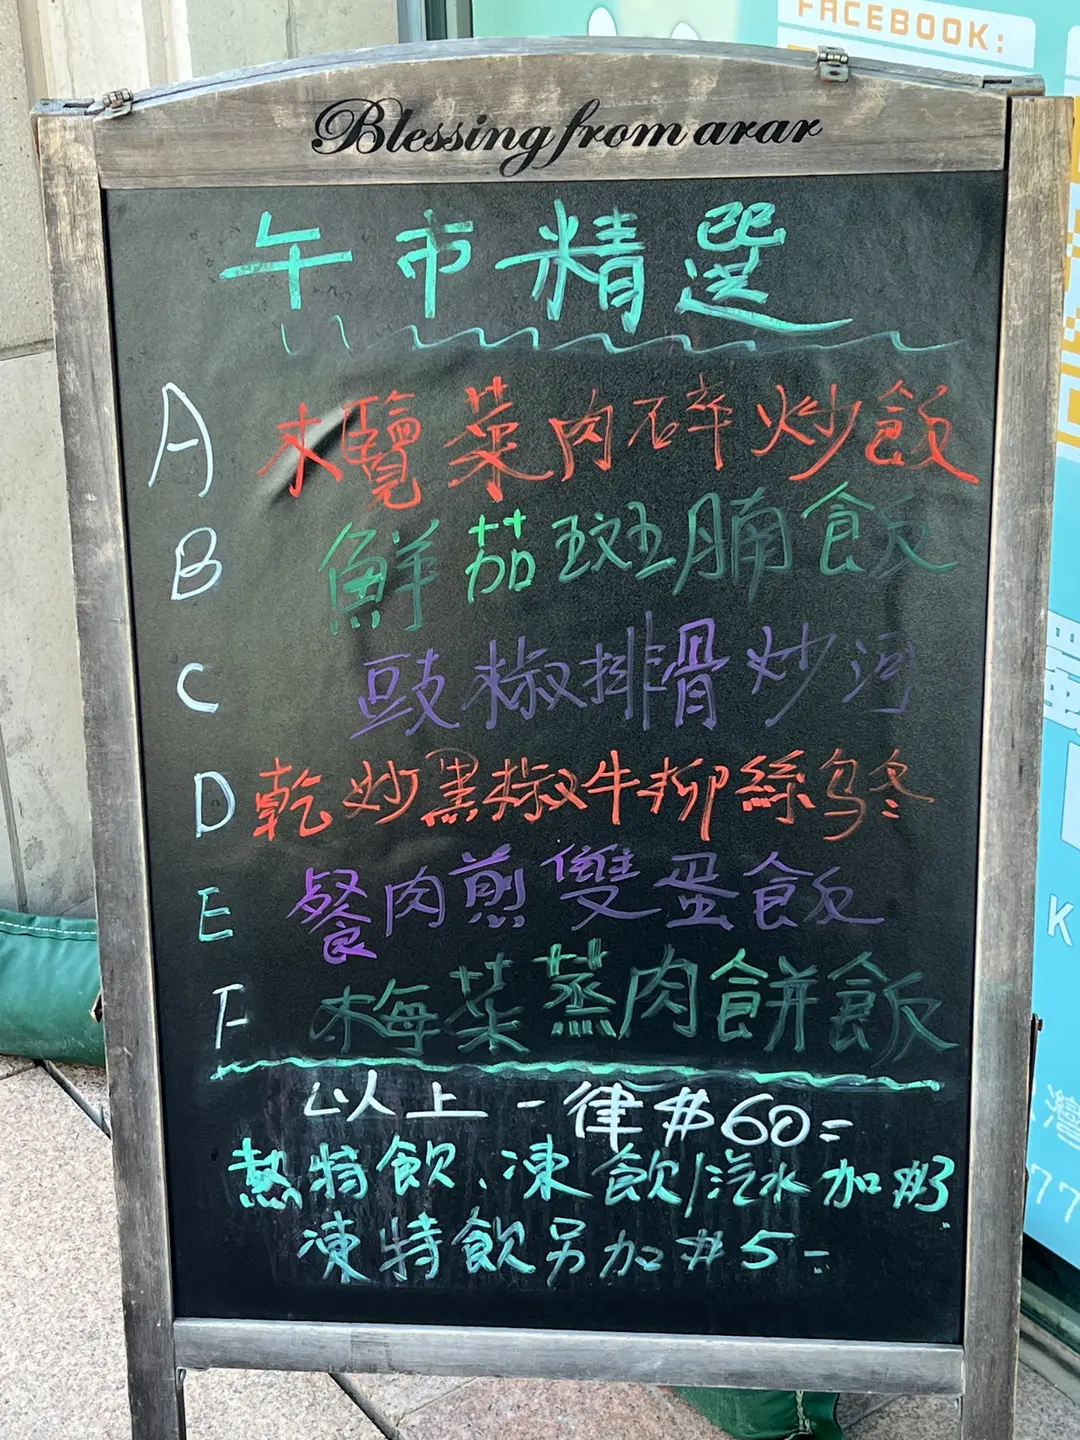 FACEBOOK:
Blessing from arar
午市精選
A 木欖菜肉碎炒飯
B 鮮茄斑腩飯
C 豉椒排骨炒河
D 乾炒黑椒牛柳絲烏冬
E 餐肉煎雙蛋飯
F 梅菜蒸肉餅飯
以上一律#60=
熱特飲、凍飲/汽水加#3
凍特飲另加#5-
K
灣
77